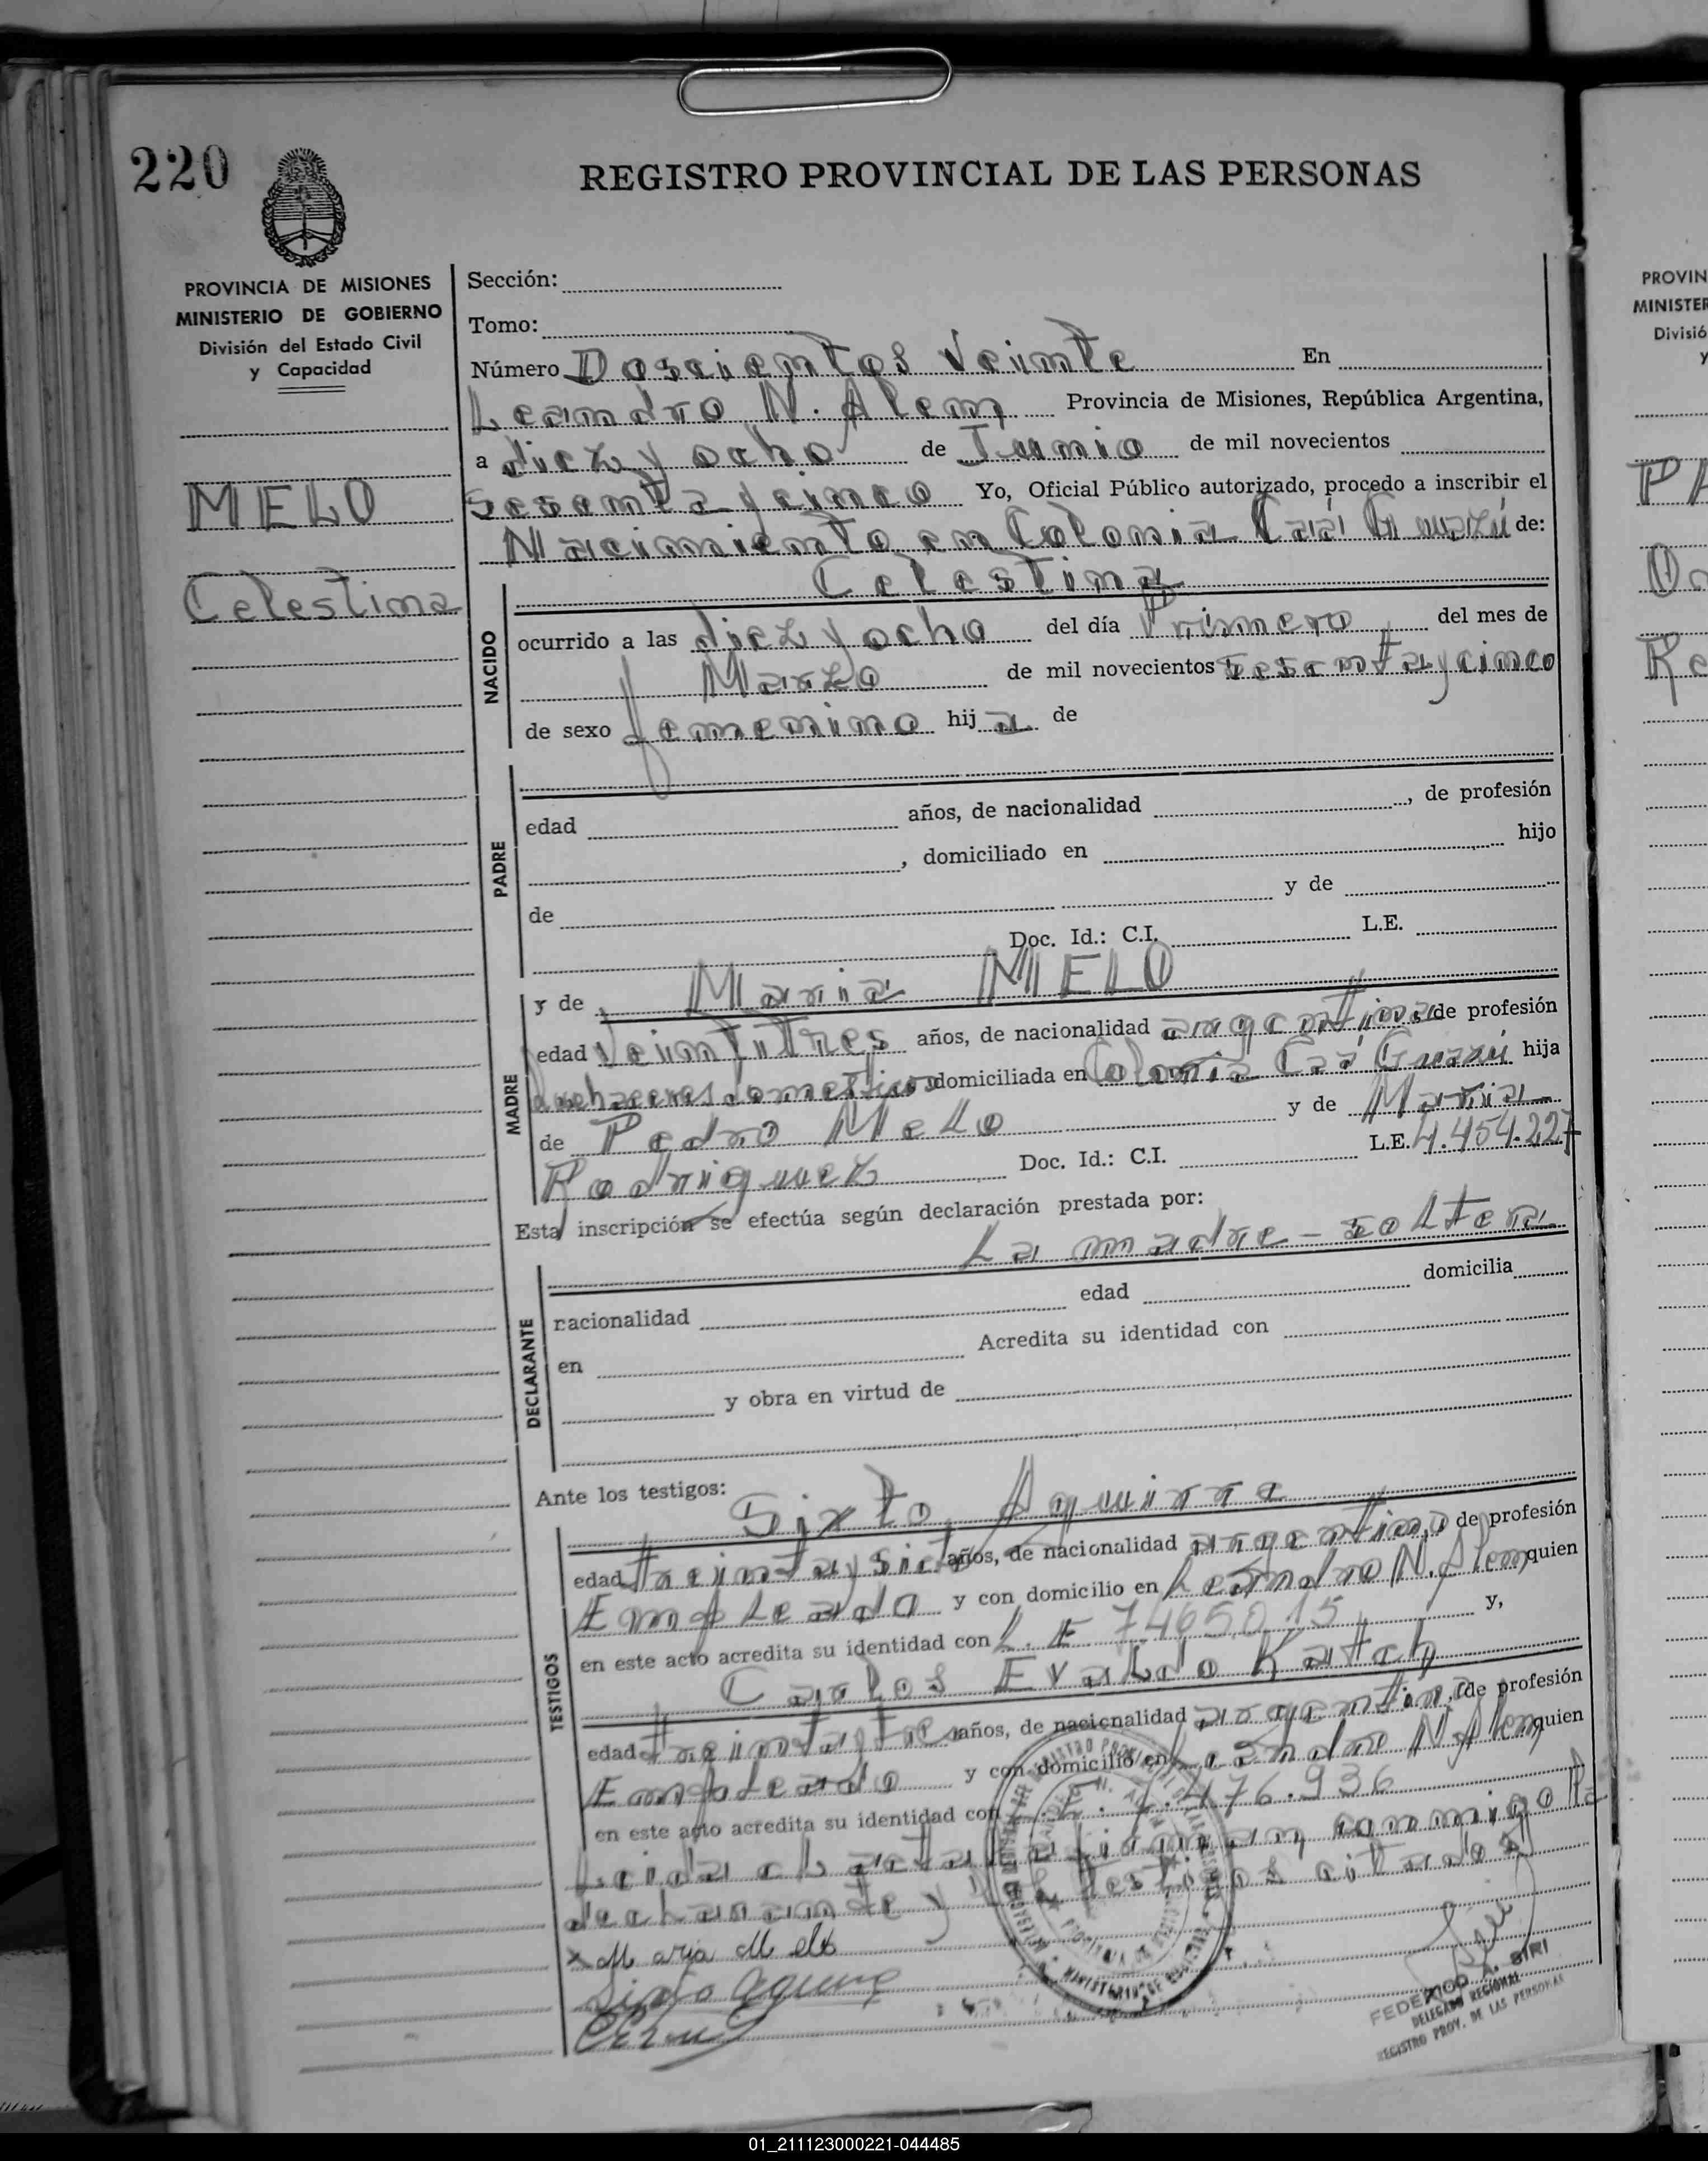 220
REGISTRO PROVINCIAL DE LAS PERSONAS
PROVINCIA DE MISIONES
MINISTERIO DE GOBIERNO
División del Estado Civil
y Capacidad
MELO
Celestina
Sección:
Tomo:
Número Doscientos Veinte En
Leandro N. Alem Provincia de Misiones, República Argentina,
a diez y ocho de Junio de mil novecientos
sesenta y cinco Yo, Oficial Público autorizado, procedo a inscribir el
Nacimiento en Colonia Caá Guazú de:
Celestina
NACIDO
ocurrido a las diez y ocho del día Primero del mes de
Marzo de mil novecientos sesenta y cinco
de sexo femenino hij a de
PADRE
edad años, de nacionalidad , de profesión
, domiciliado en hijo
de y de
Doc. Id.: C.I. L.E.
y de Maria MELO
MADRE
edad Veintitres años, de nacionalidad argentina, de profesión
quehaceres domesticos domiciliada en Colonia Caá Guazú hija
de Pedro Melo y de Maria
Rodriguez Doc. Id.: C.I. L.E. 4.454.227
Esta inscripción se efectúa según declaración prestada por:
La madre - soltera
DECLARANTE
nacionalidad edad domicilia
en Acredita su identidad con
y obra en virtud de
Ante los testigos:
Sixto Aguirre
TESTIGOS
edad treinta y siete años, de nacionalidad argentino, de profesión
Empleado y con domicilio en Leandro N. Alem quien
en este acto acredita su identidad con L. E 7465015 y,
Carlos Evaldo Kattch
edad treinta y tres años, de nacionalidad argentino, de profesión
Empleado y con domicilio en Leandro N. Alem quien
en este acto acredita su identidad con L.E. 7.476.936
Leida el acta la firman conmigo la
declarante y los testigos citados
x Maria Melo
Sixto Aguirre
FEDERICO A. SIRI
DELEGADO REGIONAL
REGISTRO PROV. DE LAS PERSONAS
PROVIN
MINISTER
Divisió
y
PA
Re
01_211123000221-044485